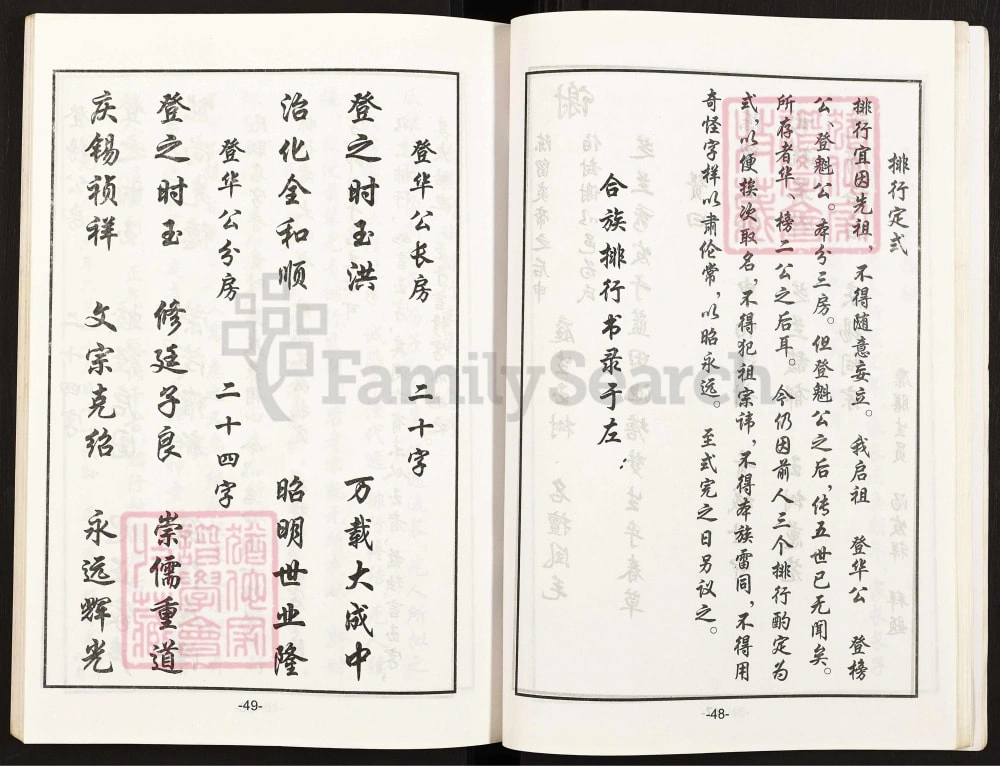 排行定式
排行宜因先祖，不得随意妄立。我启祖 登华公 登榜
公、登魁公。本分三房。但登魁公之后，传五世已无闻矣。
所存者华、榜二公之后耳。今仍因前人三个排行酌定为
式，以便挨次取名，不得犯祖宗讳，不得本族雷同，不得用
奇怪字样以肃伦常，以昭永远。 至式完之日另议之。
合族排行书录于左：
-48-
登华公长房 二十字
登之时玉洪 万载大成中
治化全和顺 昭明世业隆
登华公分房 二十四字
登之时玉 修廷子良 崇儒重道
庆锡祯祥 文宗克绍 永远辉光
-49-
FamilySearch